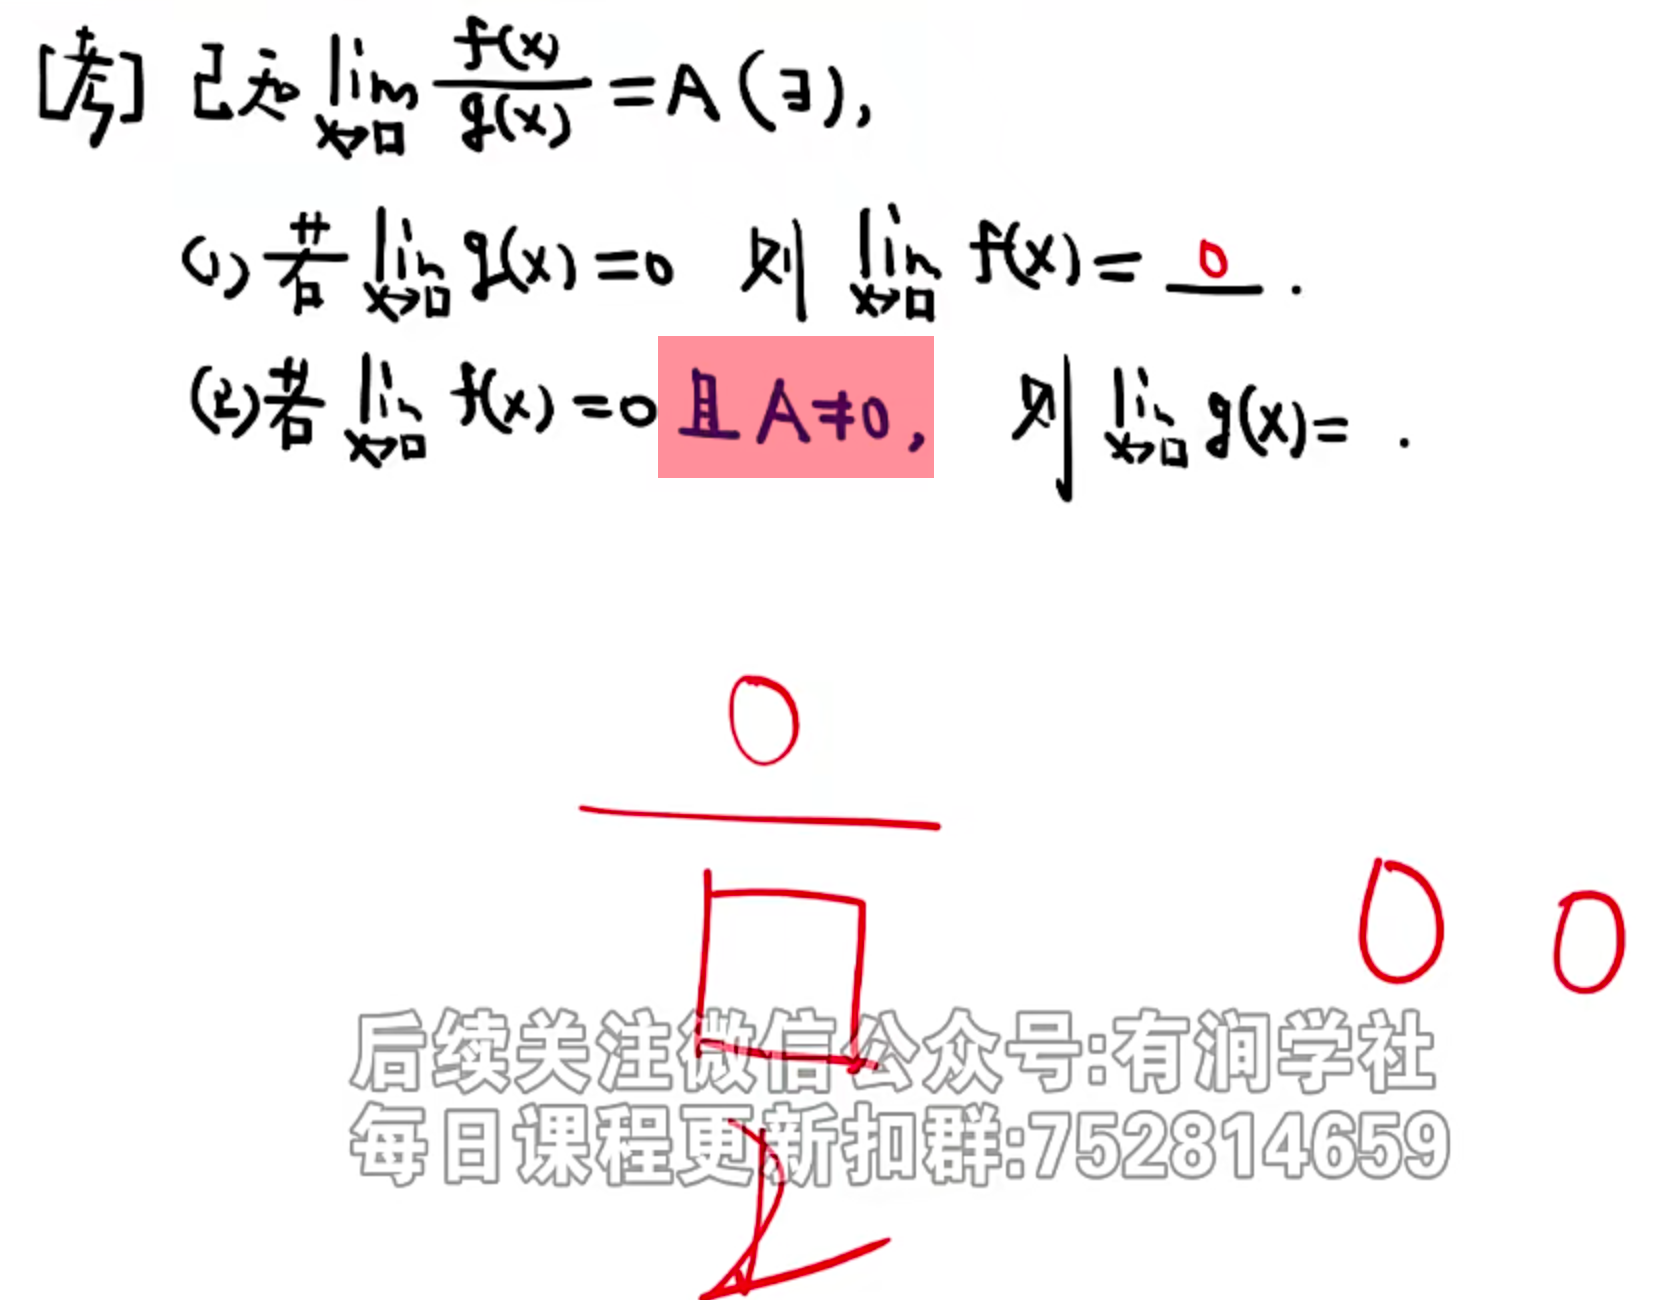 [考] 已知 lim x→□ f(x)/g(x) = A (∃),
(1) 若 lim x→□ g(x) = 0 则 lim x→□ f(x) = 0 .
(2) 若 lim x→□ f(x) = 0 且 A ≠ 0, 则 lim x→□ g(x) = .
0
□
0 0
后续关注微信公众号:有润学社
每日课程更新扣群:752814659